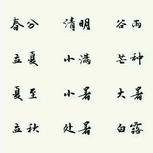 春分 清明 谷雨
立夏 小满 芒种
夏至 小暑 大暑
立秋 处暑 白露